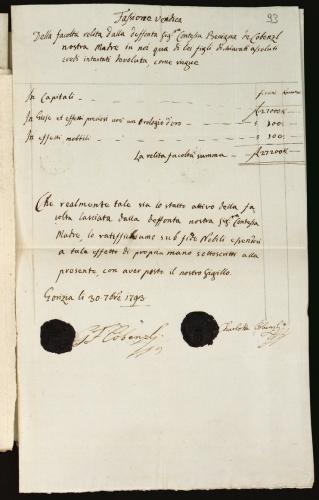 93
Fassione veridica
Della facoltà relita dalla deffonta Sig.ra Contessa Benigna de Cobenzl
nostra Madre in noi qua di lei figli dichiarati assoluti
eredi intestati devoluta, come segue
fiorini
In Capitali - - - f 27000 x
In effetti preziosi ed un Orologio d'oro - - - " 100:
In effetti mobili - - - " 100:
La relita facoltà summa - - f 27200 x
Che realmente tale sia lo stato attivo della fa
coltà lasciata dalla deffonta nostra Sig.ra Contessa
Madre, lo ratifichiamo sub fide Nobili essendosi
a tale effetto di propria mano sottoscritti alla
presente, con aver posto il nostro Sigillo.
Gorizia li 30. 7bre 1793
Cobenzl
Carlotta Cobenzl